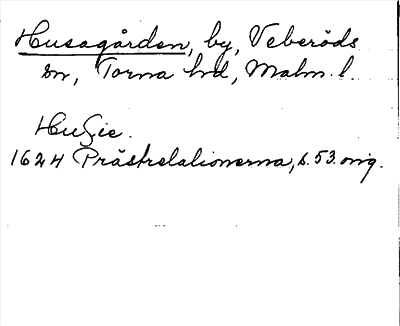 Husagården, by, Veberöds
sn, Torna hd, Malm. l.
Hußie.
1624 Prästrelationerna, s. 53. orig.